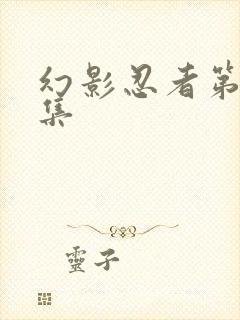 幻影忍者第
集
靈子